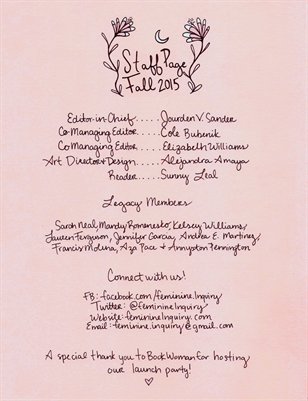 Staff Page
Fall 2015
Editor-in-Chief.....Jourden V. Sander
Co Managing Editor.....Cole Bubenik
Co Managing Editor.....Elizabeth Williams
Art Director & Design.....Alejandra Amaya
Reader.....Sunny Leal
Legacy Members
Sarah Neal, Mandy Romenesko, Kelsey Williams,
Lauren Ferguson, Jennifer Garcia, Andrea E. Martinez,
Francis Molina, Aza Pace & Annyston Pennington
Connect with us!
FB: facebook.com/feminine.Inquiry
Twitter: @feminineInquiry
Website: feminineInquiry.com
Email: feminine.inquiry@gmail.com
A special thank you to BookWoman for hosting
our launch party!